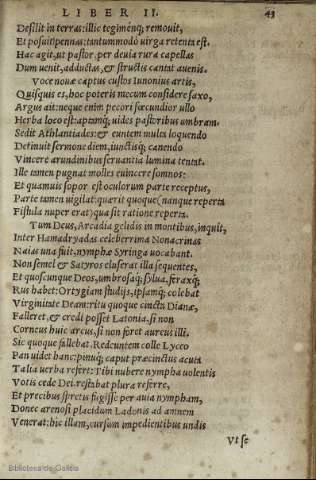 LIBER II. 43
Desilit in terras: illic tegimenq; remouit,
Et posuit pennas: tantummodo uirga retenta est.
Hac agit, ut pastor, per deuia rura capellas
Dum uenit, adductas, & structis cantat auenis.
Voce noua captus custos Iunonis artis,
Quisquis es, hoc poteris mecum considere saxo,
Argus ait: neque enim pecori fœcundior ullo
Herba loco est: aptamq; uides pastoribus umbram.
Sedit Athlantiades: & euntem multa loquendo
Detinuit sermone diem, iunctisq; canendo
Vincere arundinibus seruantia lumina tentat.
Ille tamen pugnat molles euincere somnos:
Et quamuis sopor est oculorum parte receptus,
Parte tamen uigilat: quærit quoque (nanque reperta
Fistula nuper erat) qua sit ratione reperta.
Tum Deus, Arcadiæ gelidis in montibus, inquit,
Inter Hamadryadas celeberrima Nonacrinas
Naias una fuit, nymphæ Syringa uocabant.
Non semel & Satyros eluserat illa sequentes,
Et quoscunque Deos, umbrosaq; sylua, feraxq;
Rus habet: Ortygiam studijs, ipsamq; colebat
Virginitate Deam: ritu quoque cincta Dianæ,
Falleret, & credi posset Latonia, si non
Corneus huic arcus, si non foret aureus illi.
Sic quoque fallebat. Redeuntem colle Lyceo
Pan uidet hanc: pinuq; caput præcinctus acuta
Talia uerba refert: Tibi nubere nympha uolentis
Votis cede Dei. restabat plura referre,
Et precibus spretis fugisse per auia nympham,
Donec arenosi placidum Ladonis ad amnem
Venerat: hic illam, cursum impedientibus undis
Vt se
Biblioteca de Galicia